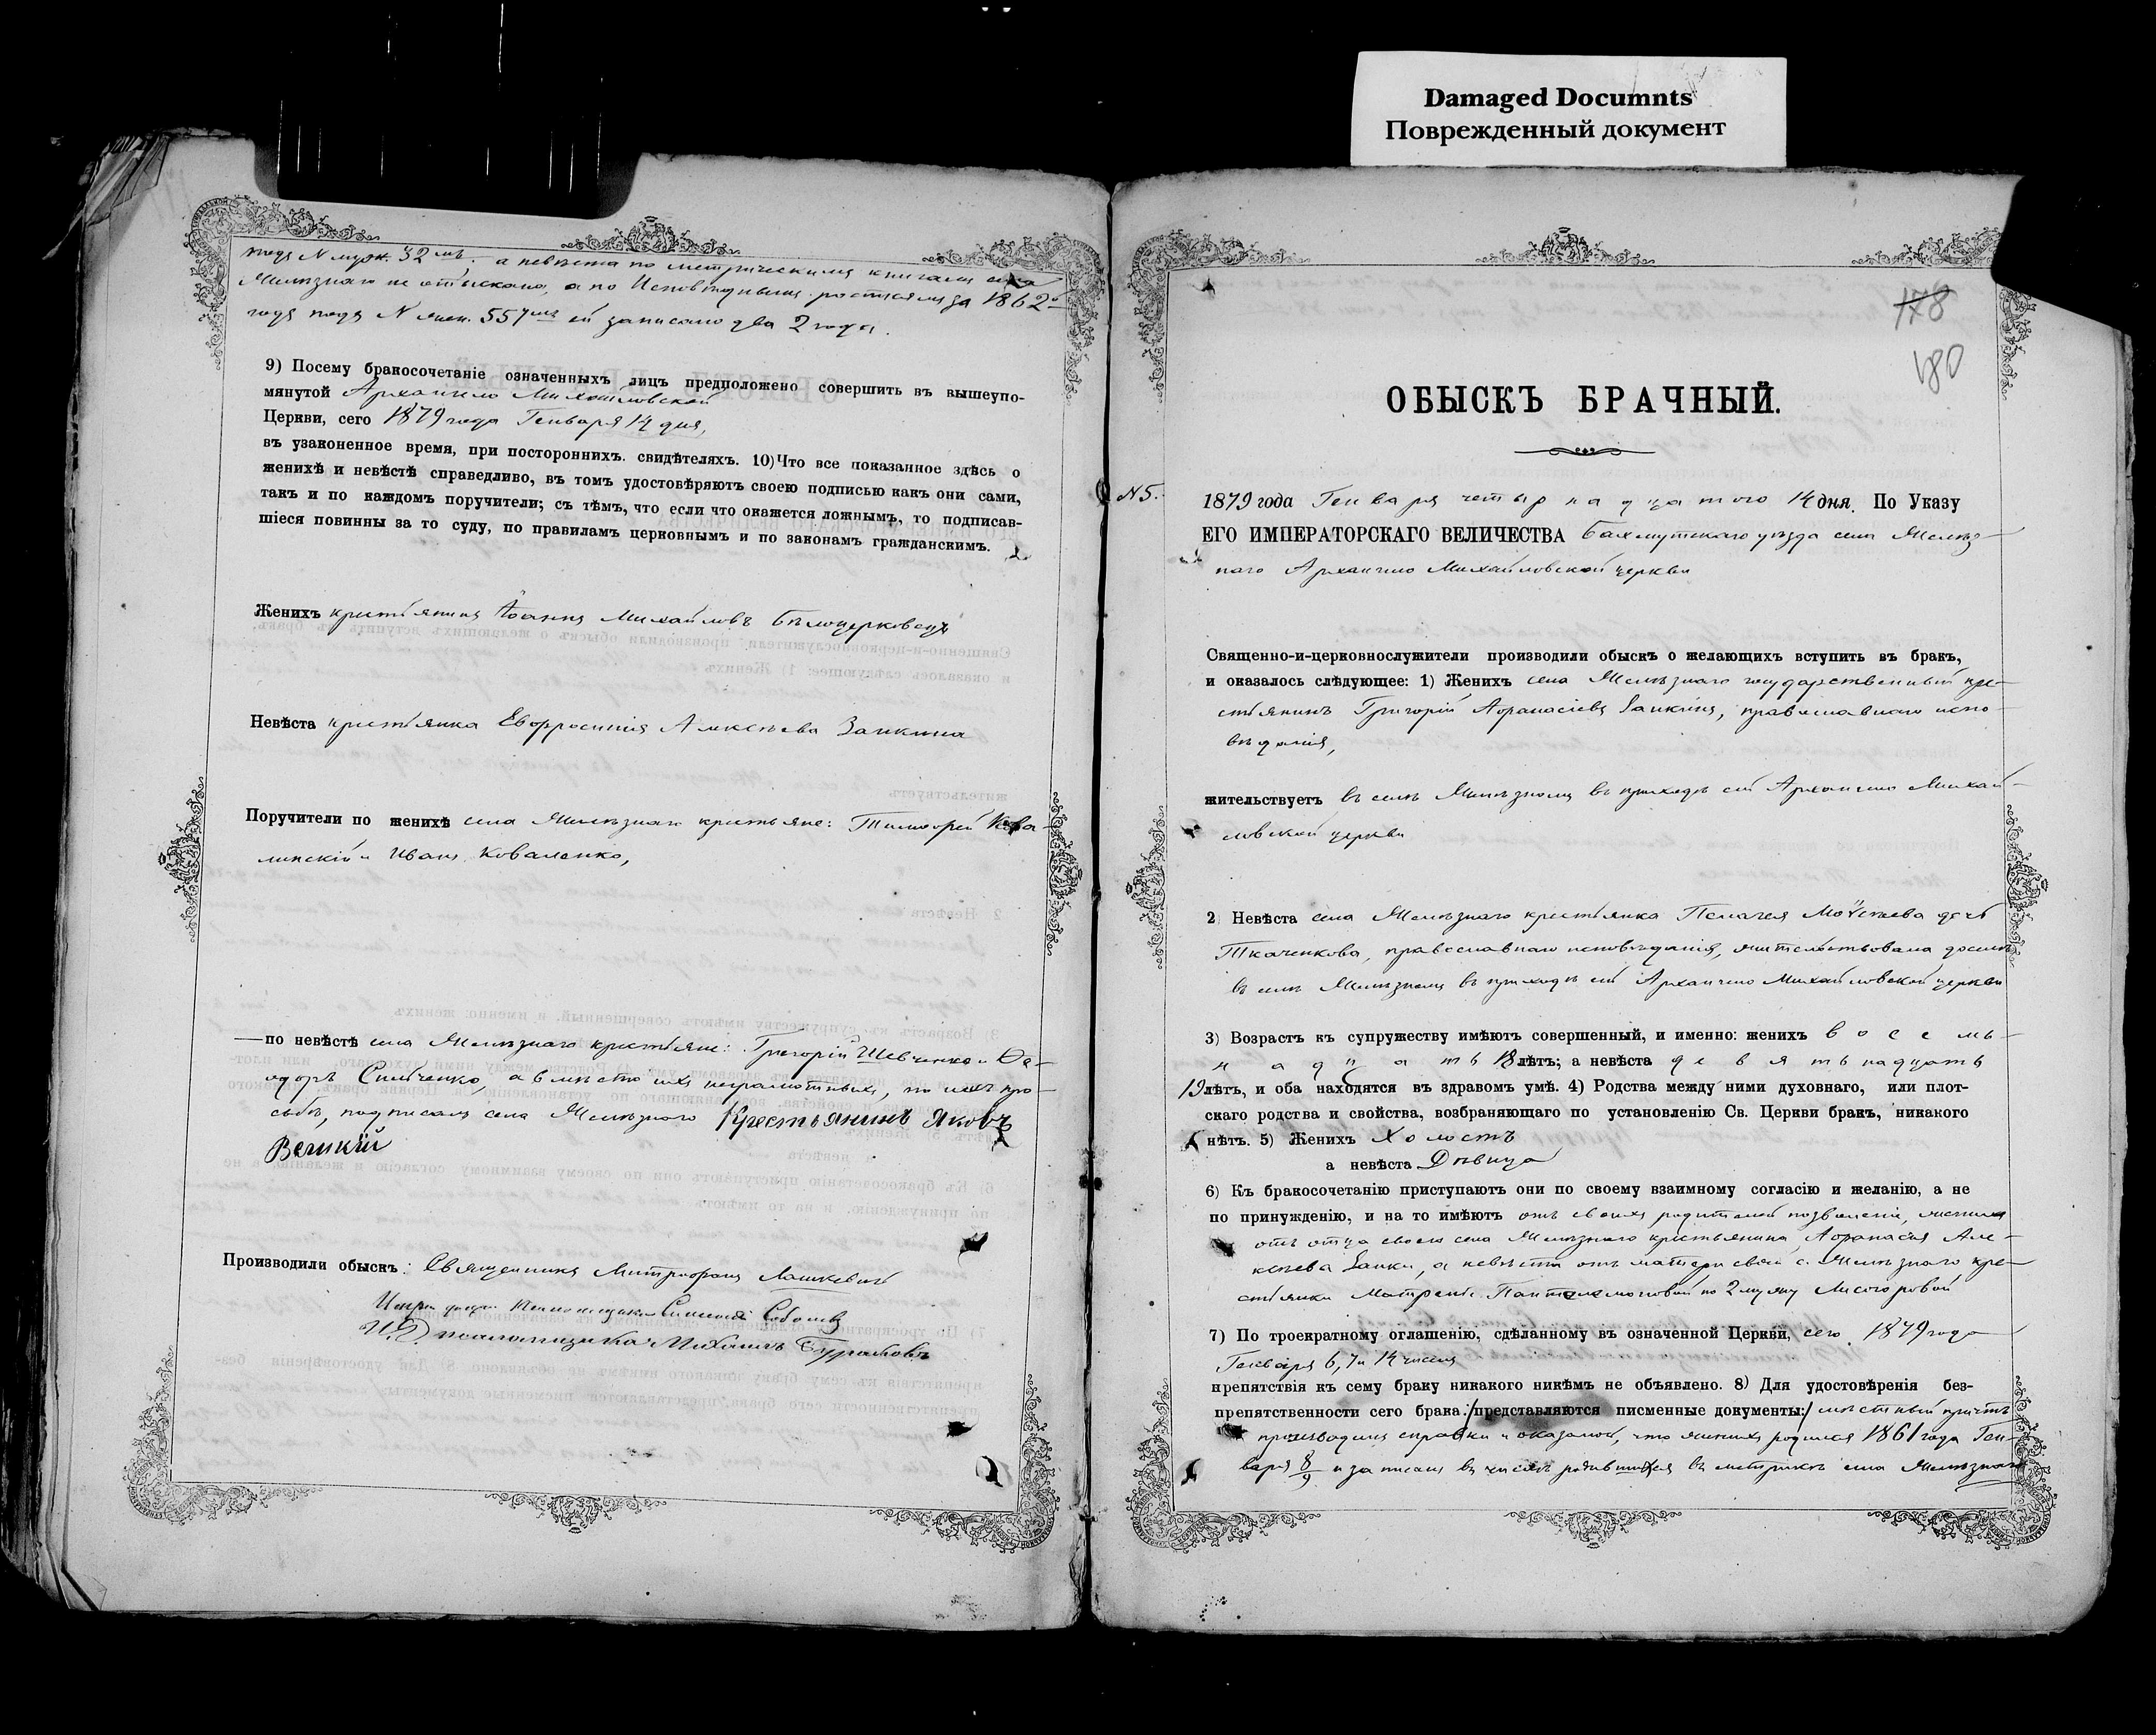 Damaged Documnts
Поврежденный документ
подъ N муж. 32 мъ; а невѣста по метрическимъ книгамъ села
Желѣзнаго не отыскано, а по Исповѣднымъ росписямъ за 1862 й
годъ подъ N жен. 557 мъ ей записано два 2 года.
9) Посему бракосочетаніе означенныхъ лицъ предположено совершить въ вышеупо-
мянутой Архангело Михайловской
Церкви, сего 1879 года Генваря 14 дня,
въ узаконенное время, при постороннихъ. свидѣтеляхъ. 10) Что все показанное здѣсь о
женихѣ и невѣстѣ справедливо, въ томъ удостовѣряютъ своею подписью какъ они сами,
такъ и по каждомъ поручители; съ тѣмъ, что если что окажется ложнымъ, то подписав-
шіеся повинны за то суду, по правиламъ церковнымъ и по законамъ гражданскимъ.
Женихъ крестьянинъ Іоаннъ Михайловъ Бѣлоцерковецъ
Невѣста крестьянка Евфросинія Алексѣева Заикина
Поручители по женихѣ села Желѣзнаго крестьяне: Тимофей
Иванъ Коваленко,
—по невѣстѣ села Желѣзнаго крестьяне: Григорій Шевченко и Ѳе-
одоръ а вмѣсто ихъ неграмотныхъ, по ихъ про-
сьбѣ, подписалъ села Желѣзного Крестьянинъ Яковъ
Великій
Производили обыскъ: Священникъ Митрофанъ Лашкевичъ
И.Д. псаломщика Михаилъ
178
180
ОБЫСКЪ БРАЧНЫЙ.
N 5. 1879 года Генваря четырнадцатого 14 дня. По Указу
ЕГО ИМПЕРАТОРСКАГО ВЕЛИЧЕСТВА Бахмутскаго уѣзда села Желѣз-
наго Архангело Михайловской церкви
Священно-и-церковнослужители производили обыскъ о желающихъ вступить въ бракъ,
и оказалось слѣдующее: 1) Женихъ села Желѣзнаго государственный кре-
стьянинъ Григорій Аѳанасіевъ Заикинъ, православнаго испо-
вѣданія,
жительствуетъ въ селѣ Желѣзномъ въ приходѣ сей Архангело Михай-
ловской церкви
2 Невѣста села Желѣзнаго крестьянка Пелагея Моѵсѣева дочь
Ткаченкова, православнаго исповѣданія, жительствовала доселѣ
въ селѣ Желѣзномъ въ приходѣ сей Архангело Михайловской церкви
3) Возрастъ къ супружеству имѣютъ совершенный, и именно: женихъ восемь-
надцать 18 лѣтъ; а невѣста девятьнадцать
19 лѣтъ, и оба находятся въ здравомъ умѣ. 4) Родства между ними духовнаго, или плот-
скаго родства и свойства, возбраняющаго по установленію Св. Церкви бракъ, никакого
нѣтъ. 5) Женихъ Холостъ
а невѣста Дѣвица
6) Къ бракосочетанію приступаютъ они по своему взаимному согласію и желанію, а не
по принужденію, и на то имѣютъ отъ своихъ родителей позволеніе, женихъ
отъ отца своего села Желѣзнаго крестьянина, Аѳанасія Але-
ксѣева Заики, а невѣста отъ матери своей с. Желѣзнаго кре-
стьянки Матрены Пантелемоновой по 2 мужу Лисогоровой
7) По троекратному оглашенію, сдѣланному въ означенной Церкви, сего 1879 года
Генваря 6, 7 и 14 числа
препятствія къ сему браку никакого никѣмъ не объявлено. 8) Для удостовѣренія без-
препятственности сего брака: / представляются писменные документы: / мѣстный причтъ
производилъ справки и оказалось, что женихъ родился 1861 года Ген-
варя 8/9 и записанъ въ числѣ родившихся въ метрикѣ села Желѣзнаго